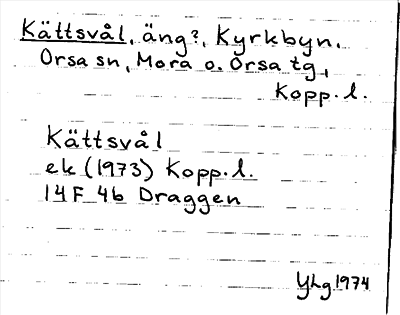 Kättsvål, äng?, Kyrkbyn.
Orsa sn, Mora o. Orsa tg,
Kopp. l.
Kättsvål
ek (1973) Kopp. l.
14F 4b Draggen
Yhg 1974